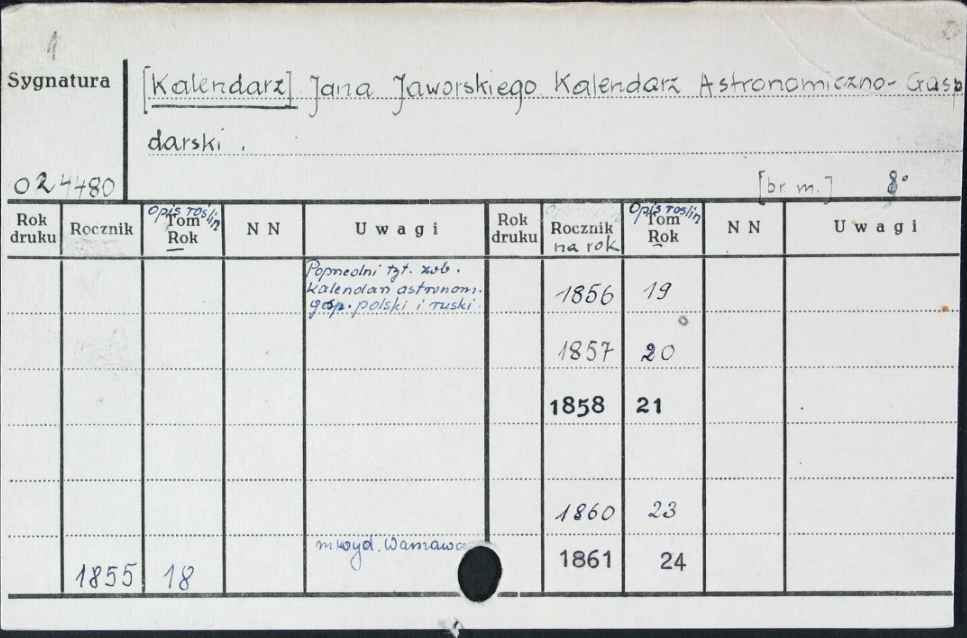 1
Sygnatura
[Kalendarz] Jana Jaworskiego Kalendarz Astronomiczno-Gosp
darski.
024480
[br. m.] 8°
Rok druku Rocznik Opis roślin Tom Rok N N Uwagi Rok druku Rocznik na rok Opis roślin Tom Rok N N Uwagi
Poprzedni tyt. zob.
Kalendarz astronom.
gosp. polski i ruski
1856 19
1857 20
1858 21
1860 23
m. wyd. Warszawa
1861 24
1855 18